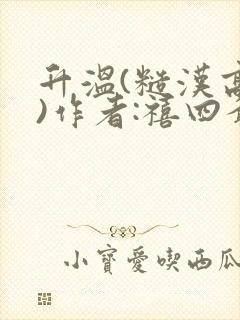 升溫(糙漢高
)作者:禧四
小寶愛喫西瓜